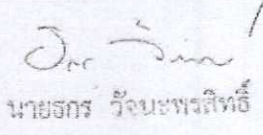 นายธกร วัจนะพรสิทธิ์